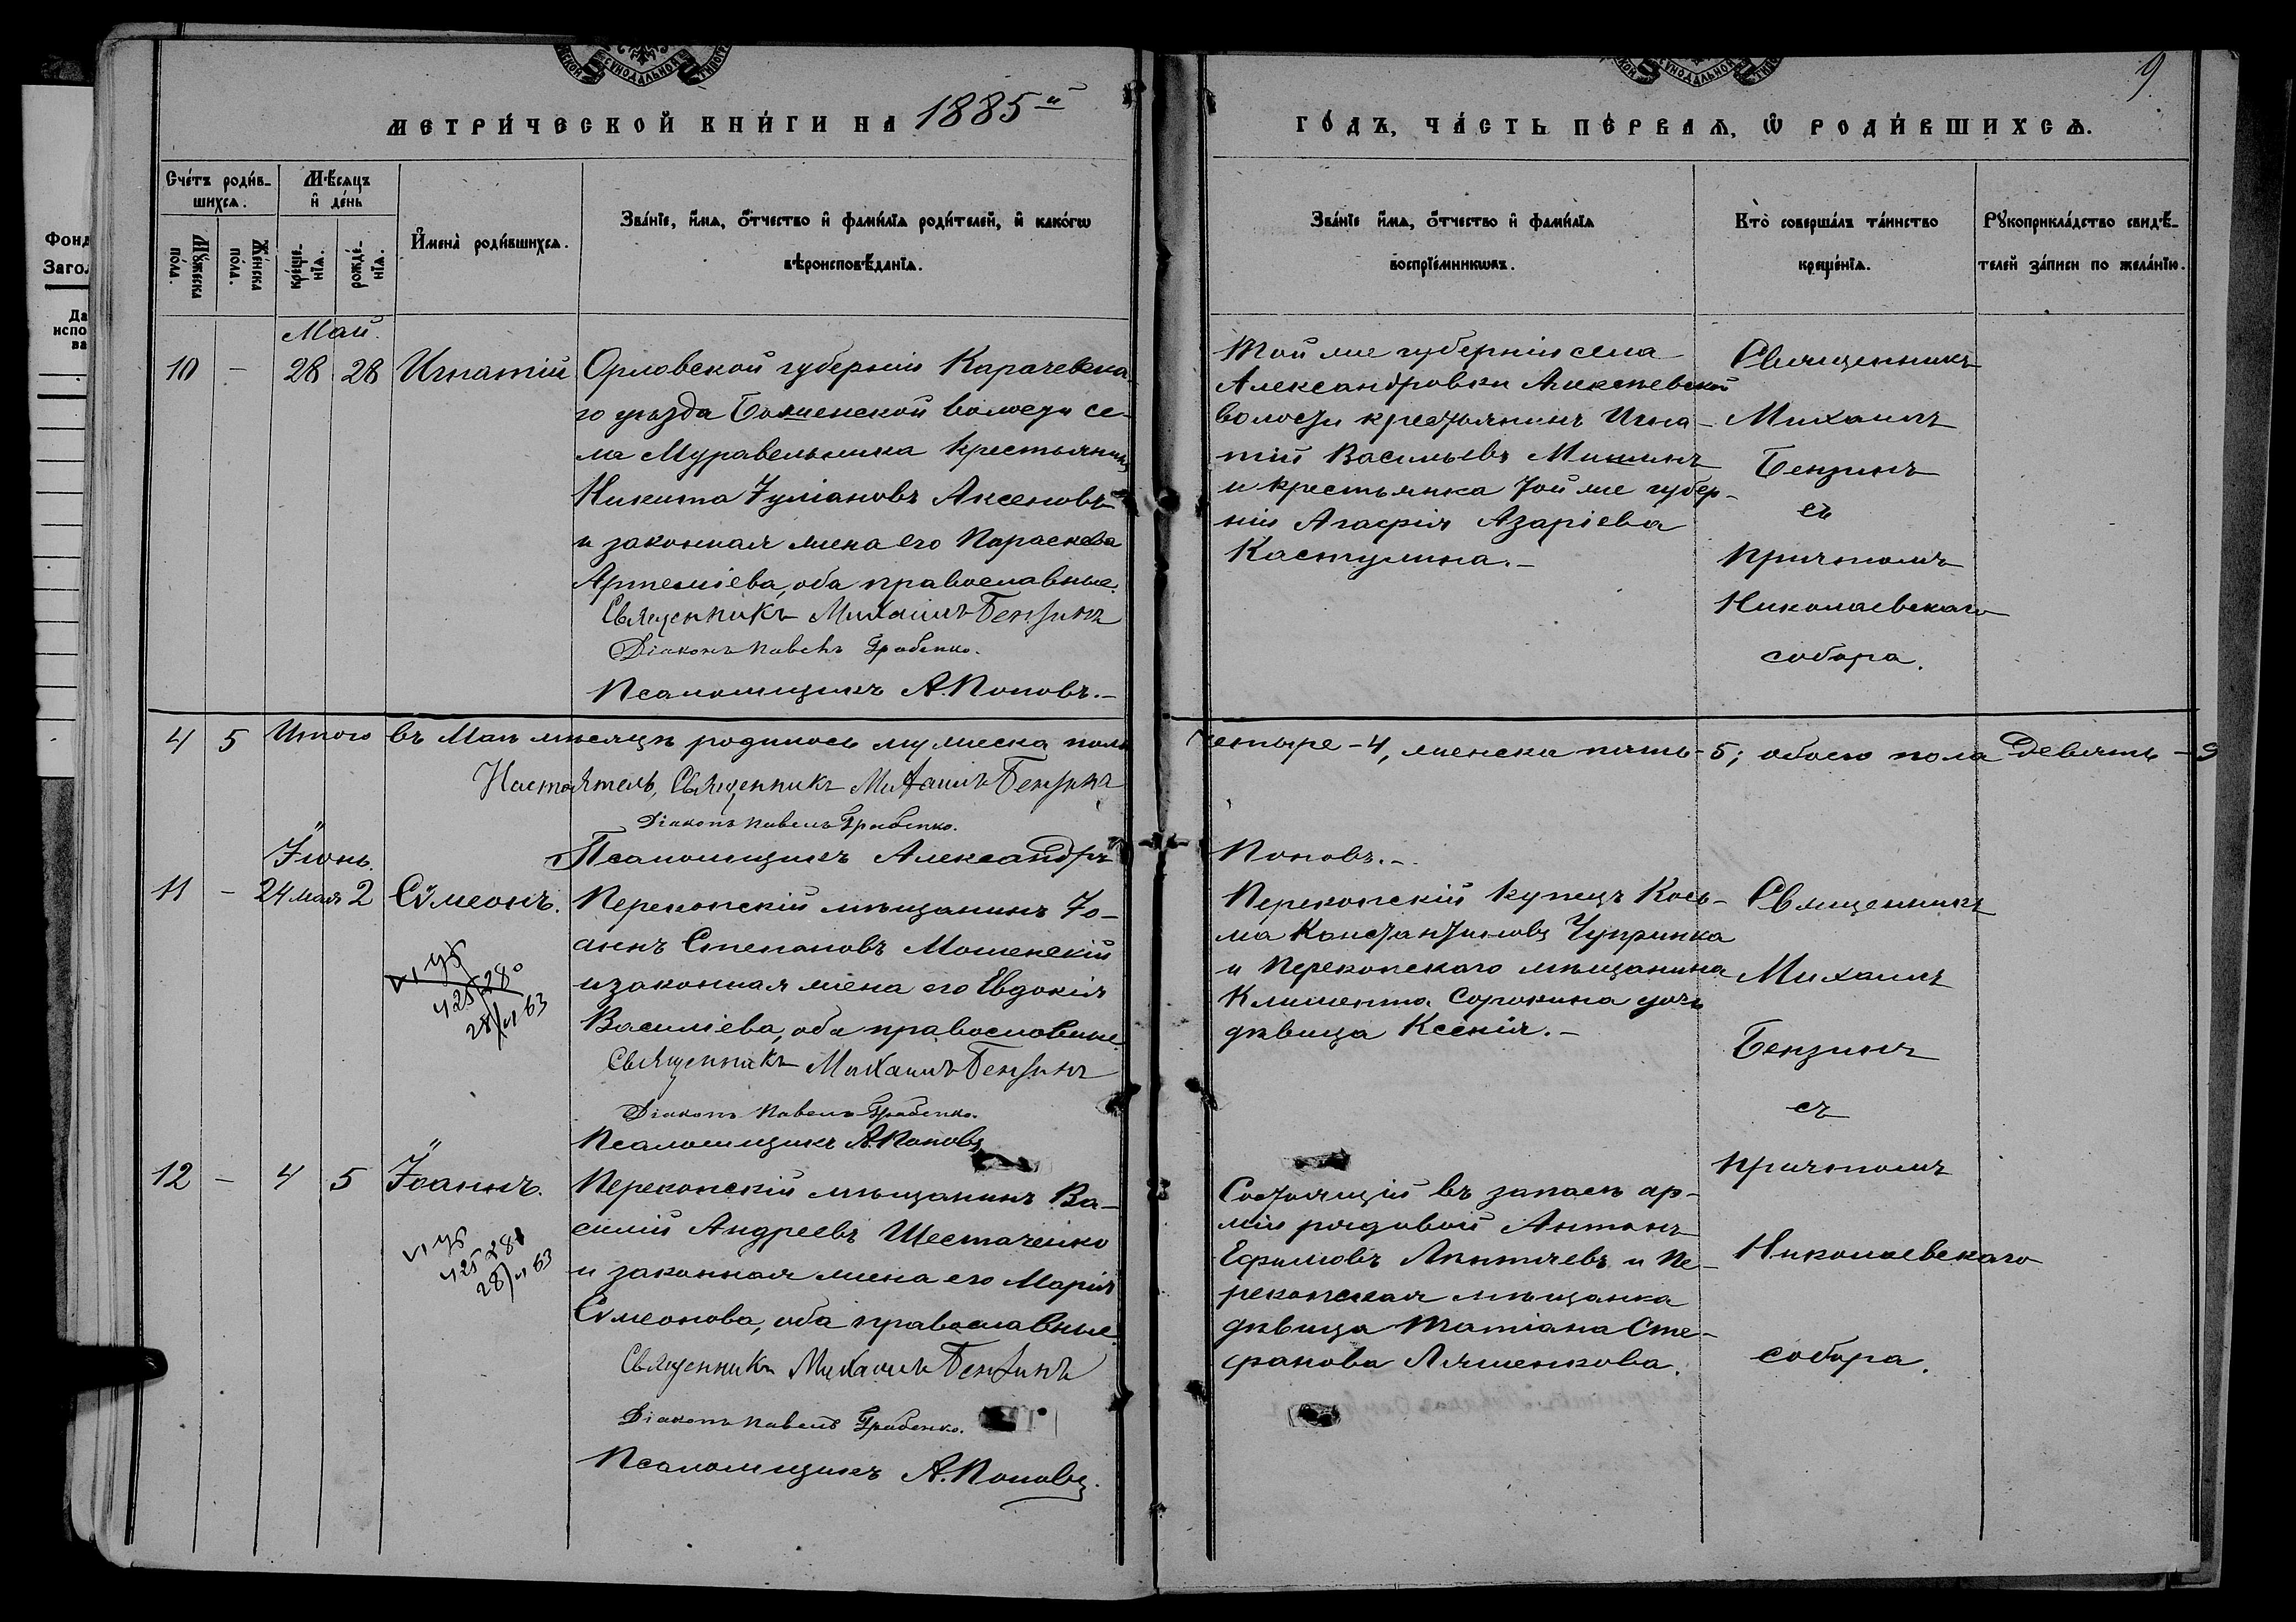 9
МЕТРИ́ЧЕСКОЙ КНИ́ГИ НА 1885й
ГО́ДЪ, ЧА́СТЬ ПЕ́РВАѦ, Ѡ҆ РОДИ́ВШИХСѦ.
Сче́тъ роди́в-
шихсѧ.
Мꙋ́жеска по́ла.
Же́нска по́ла.
Мѣ́сѧцъ
и҆ де́нь
креще́-
нїѧ.
рожде́-
нїѧ.
И҆мена̀ роди́вшихсѧ.
Зва́нїе, и҆́мѧ, ѻ҆́тчество и҆ фами́лїѧ роди́телей, и҆ како́гѡ
вѣроисповѣ́данїѧ.
Зва́нїе и҆́мѧ, ѻ҆́тчество и҆ фами́лїѧ
воспрїе́мникѡвъ.
Кто̀ соверша́лъ та́инство
креще́нїѧ.
Рꙋкоприкла́дство свидѣ́-
телей за́писи по жела́нїю.
Май.
10 - 28 28 Игнатій
Орловской губерніи Карачевска
го уѣзда Бошенской волости се-
ла Муравельника крестьянинъ
Никита Іуліановъ Аксеновъ
и законная жена его Параскева
Артеміева, оба православные.
Священникъ Михаилъ Бензинъ
Діаконъ Павелъ Грабенко.
Псаломщикъ А. Поповъ.-
Той же губерніи села
Александровки Алексѣевской
волости крестьянинъ Игна-
тій Васильевъ Мишинъ
и крестьянка той же губер-
ніи Агафія Азаріева
Кастулина.-
Священникъ
Михаилъ
Бензинъ
съ
причтомъ
Николаевскаго
собора.
4 5 Итого въ Маѣ мѣсяцѣ родилось мужеска пола четыре-4, женска пять-5; обоего пола девять-9
Настоятель, Священникъ Михаилъ Бензинъ
Діаконъ Павелъ Грабенко.
Псаломщикъ Александръ Поповъ.-
Іюнь.
11 - 24 мая 2 Сѵмеонъ.
Перекопскій мѣщанинъ Іо-
аннъ Степановъ Мошенскій
и законная жена его Евдокія
Василіева, оба православные.
Священникъ Михаилъ Бензинъ
Діаконъ Павелъ Грабенко.
Псаломщикъ А. Поповъ
Перекопскій купецъ Кось-
ма Константиновъ Чупринка
и Перекопскаго мѣщанина
Климента Сорокина дочь
дѣвица Ксенія.-
Священникъ
Михаилъ
Бензинъ
съ
причтомъ
Николаевскаго
собора.
12 - 4 5 Іоаннъ.
Перекопскій мѣщанинъ Ва-
силій Андреевъ Шестаченко
и законная жена его Марія
Сѵмеонова, оба православные.
Священникъ Михаилъ Бензинъ
Діаконъ Павелъ Грабенко.
Псаломщикъ А. Поповъ.
Состоящій въ запасѣ ар-
міи рядовой Антонъ
Ефимовъ и Пе-
рекопская мѣщанка
дѣвица Татіана Сте-
фанова Ляшенкова.
Фонд
Заго
Да
испо
ва